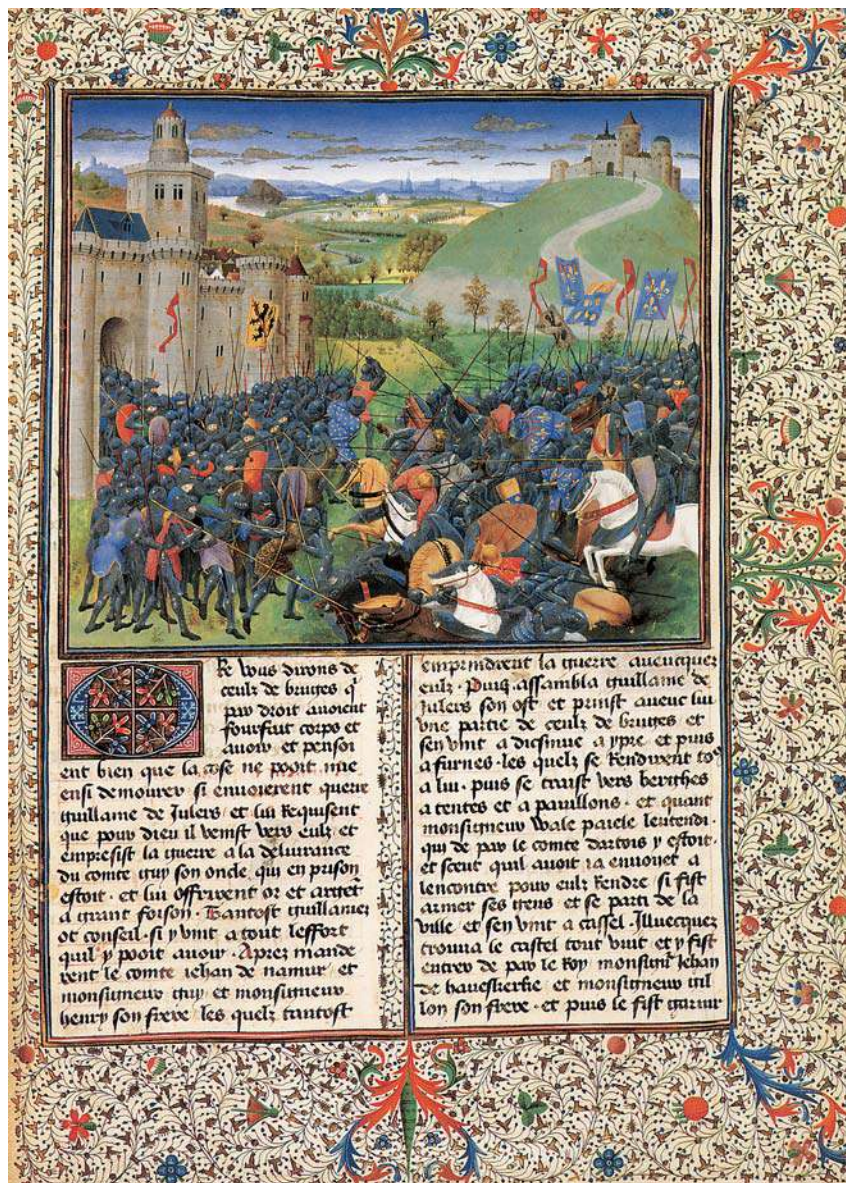 Re vous dirons de
ceulx de bruges q̄
par droit auoient
fourfait corps et
auoir et pensoi
ent bien que la cose ne pooit mie
ensi demourer si enuoierent querre
guillame de Iulers et lui Requisent
que pour dieu il venist vers eulz et
empresist la guerre a la deliurance
du comte guy son oncle qui en prison
estoit et lui offrirent or et argēt
a grant foison. Tantost guillames
ot conseil si y vint a tout leffort
quil y pooit auoir. Aprez mande
rent le comte iehan de namur et
monsigneur guy et monsigneur
henry son frere les quelz tantost
emprindrent la guerre auecquez
eulz. Puis assambla guillame de
Iulers son ost et prinst auec lui
vne partie de ceulz de bruges et
sen vint a dicsmue a ypre et puis
a furnes les quelz se Rendirent to9
a lui puis se traist vers berghes
a tentes et a pauillons et quant
monsigneur wale paiele lentendi
qui de par le comte dartois y estoit
et sceut quil auoit ia enuoiet a
lencontre pour eulz Rendre si fist
armer ses gens et se parti de la
ville et sen vint a cassel. Illuecquez
trouua le castel tout vuit et y fist
entrer de par le Roy monsignr Iehan
de haueskerke et monsigneur gil
lon son frere et puis le fist garnir